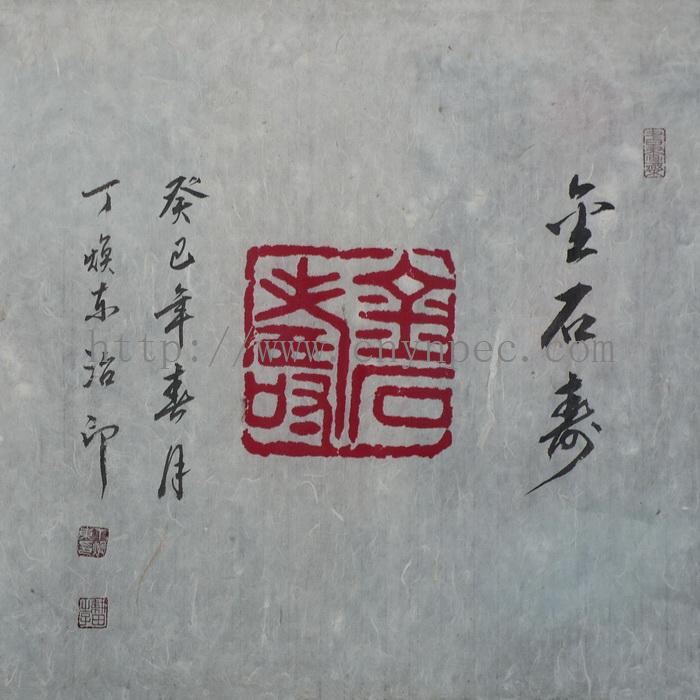 金石寿
金石壽
癸巳年春月
丁焕东治印
http://www.cnynpec.com